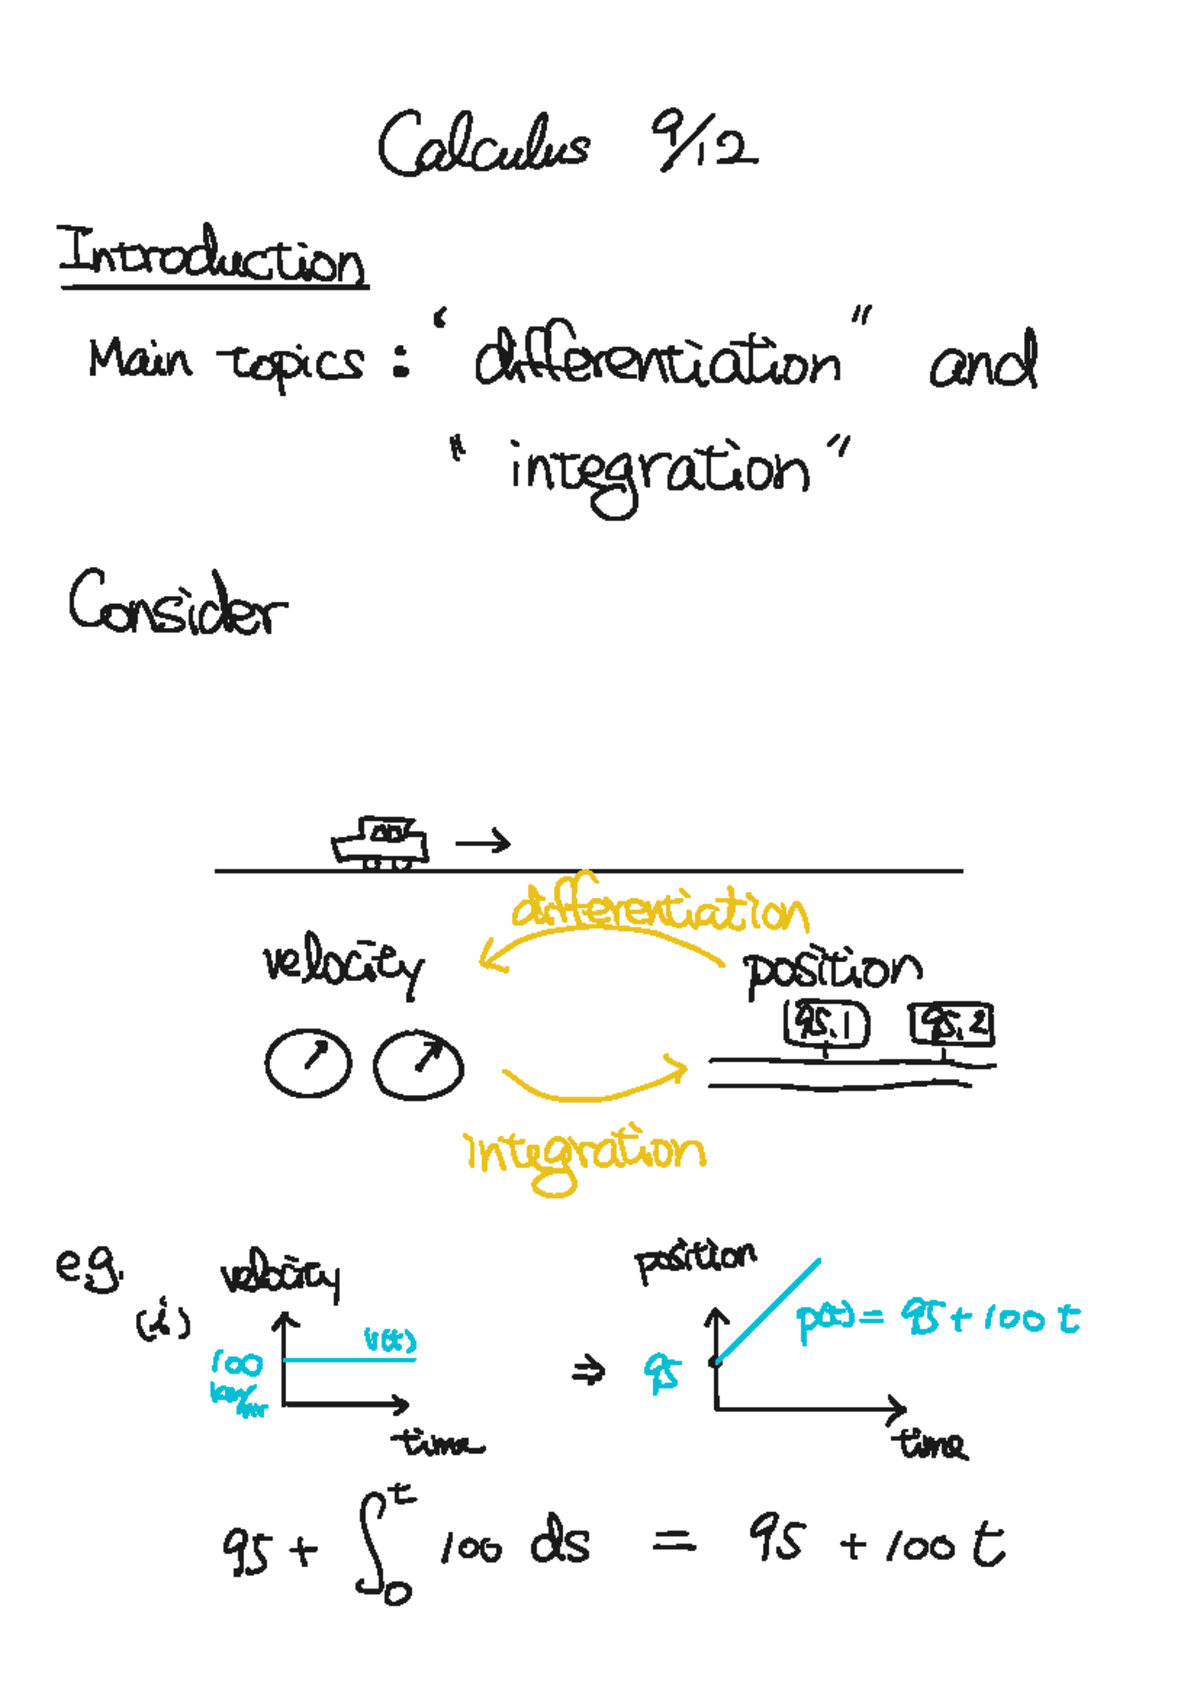 Calculus 9/12
Introduction
Main topics : " differentiation " and
" integration "
Consider
differentiation
velocity position
95.1 95.2
integration
e.g. velocity position
(i)
v(t) p(t) = 95 + 100 t
100 ⇒ 95
km/hr
time time
95 + ∫₀ᵗ 100 ds = 95 + 100 t